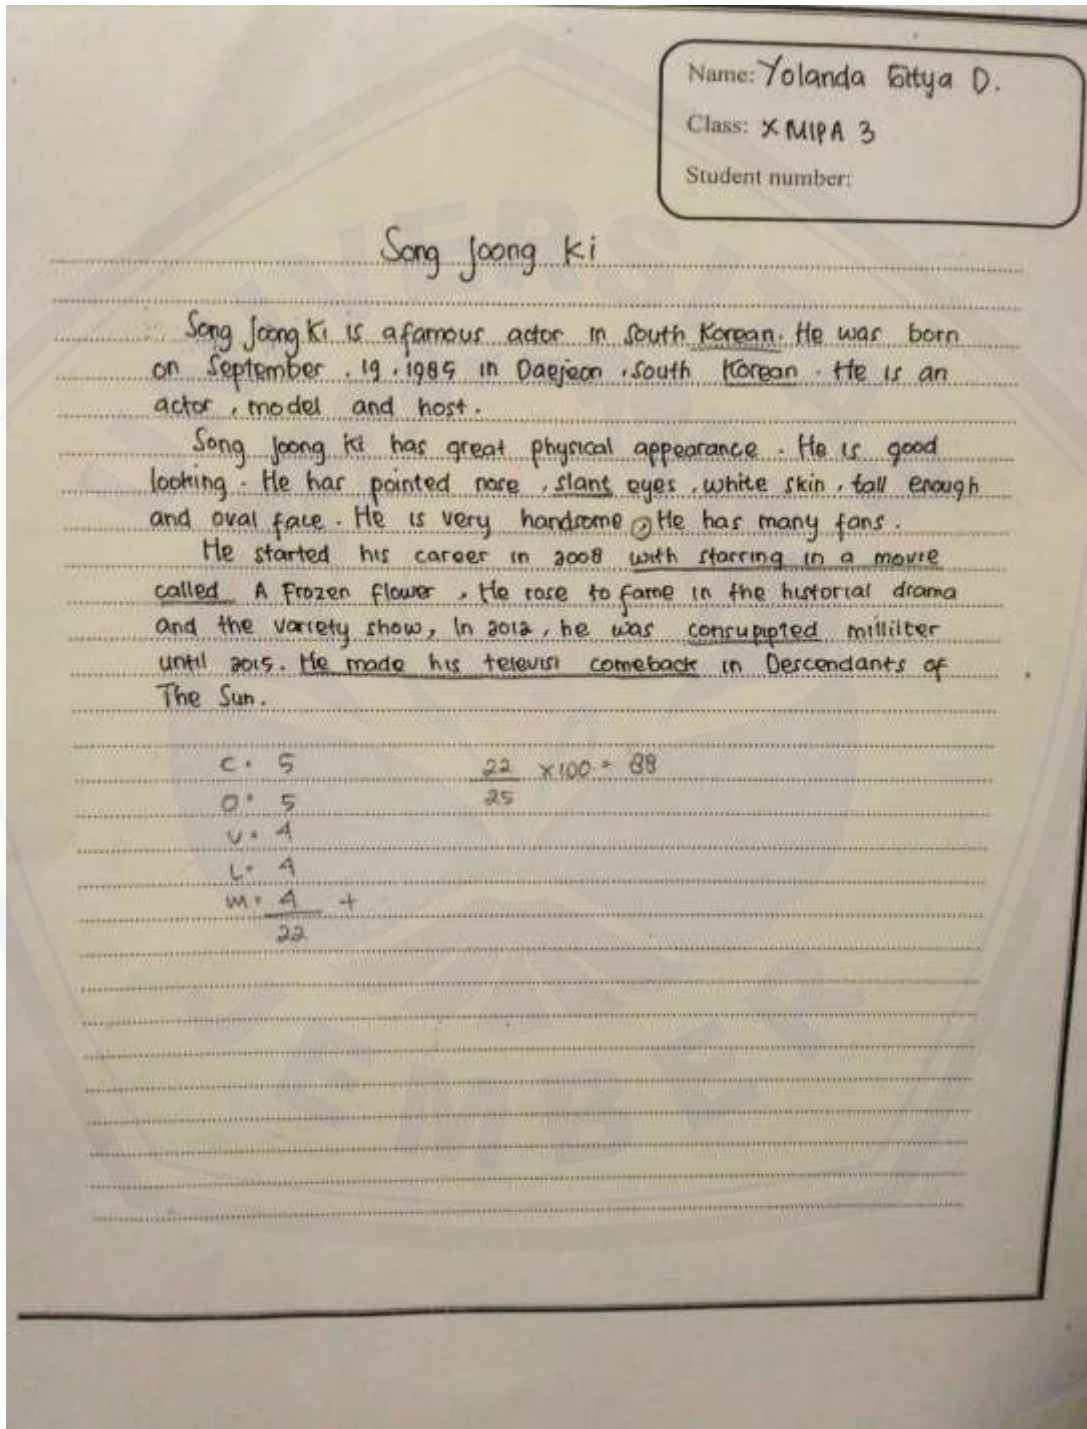 Name: Yolanda D.
Class: X MIPA 3
Student number:
Song Joong Ki
Song Joong Ki is a famous actor in South Korean. He was born
on September, 19, 1985 in Daejeon, South Korean. He is an
actor, model and host.
Song Joong Ki has great physical appearance. He is good
looking. He has pointed nose, slant eyes, white skin, tall enough
and oval face. He is very handsome, He has many fans.
He started his career in 2008 with starring in a movie
called A Frozen Flower. He rose to fame in the historial drama
and the variety show, In 2012, he was millilter
until 2015. He made his televisi comeback in Descendants of
The Sun.
C = 5
O = 5
V = 4
L = 4
M = 4 +
22
22 x100 = 88
25
UNIVERSITAS
JEMBER